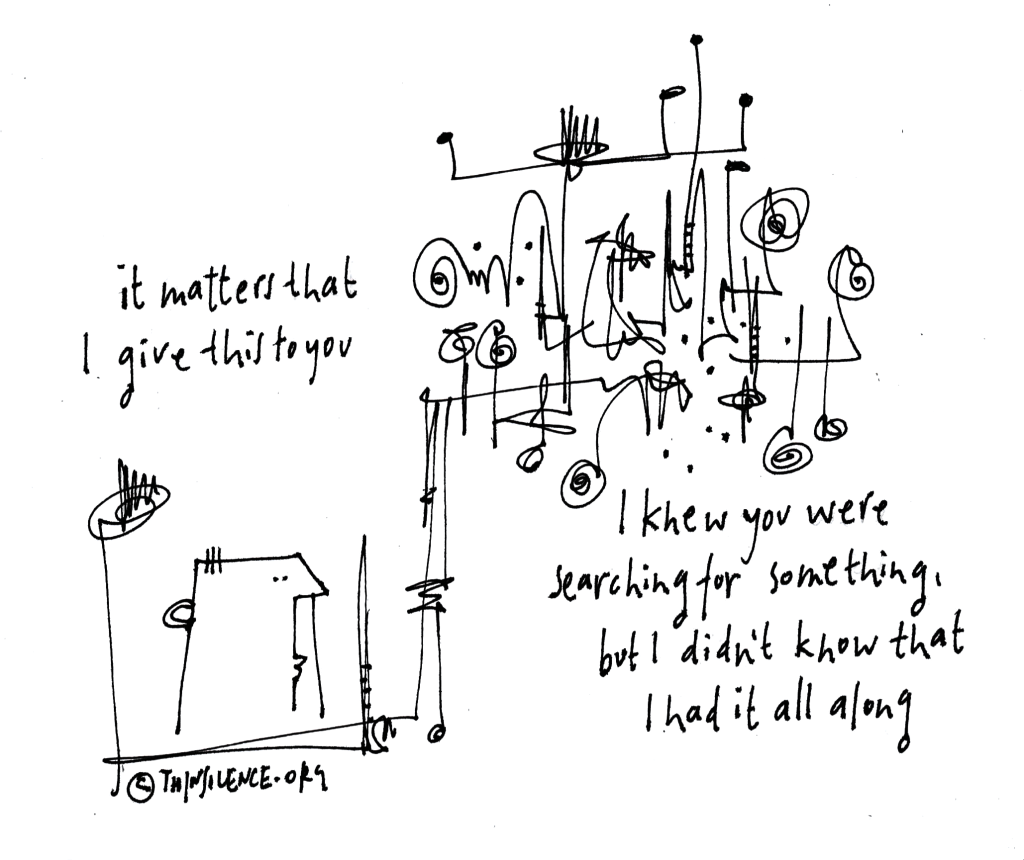 it matters that
I give this to you
I knew you were
searching for something,
but I didn't know that
I had it all along
© THINSILENCE.ORG